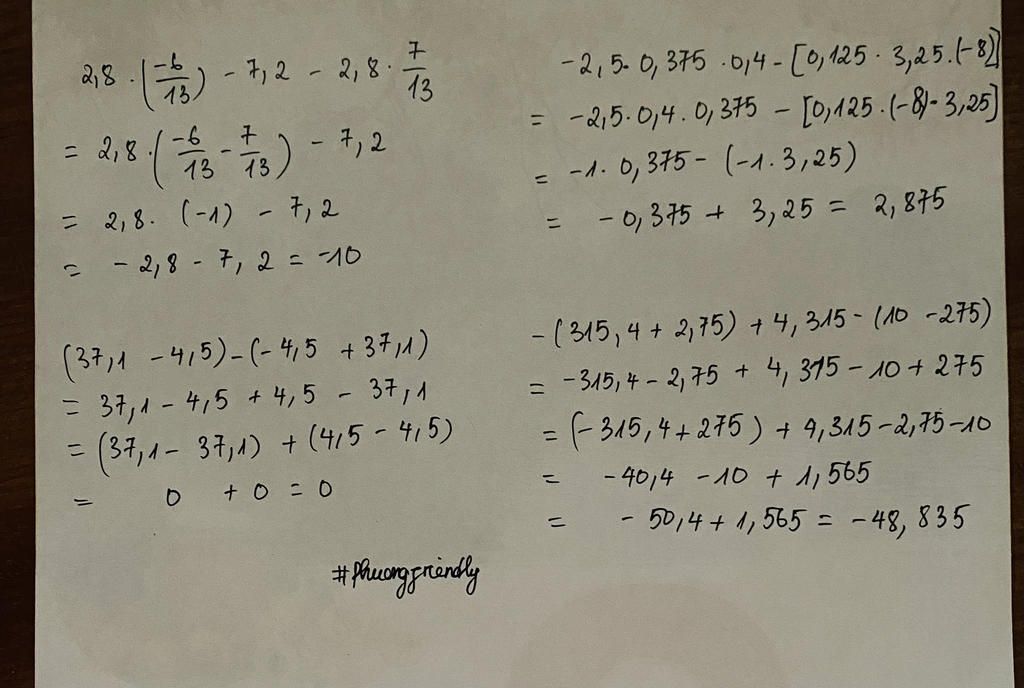 2,8 · (-6/13) - 7,2 - 2,8 · 7/13
= 2,8 · (-6/13 - 7/13) - 7,2
= 2,8 · (-1) - 7,2
= - 2,8 - 7,2 = -10
-2,5 · 0,375 · 0,4 - [0,125 · 3,25 · (-8)]
= -2,5 · 0,4 · 0,375 - [0,125 · (-8) · 3,25]
= -1 · 0,375 - (-1 · 3,25)
= - 0,375 + 3,25 = 2,875
(37,1 - 4,5) - (- 4,5 + 37,1)
= 37,1 - 4,5 + 4,5 - 37,1
= (37,1 - 37,1) + (4,5 - 4,5)
= 0 + 0 = 0
- (315,4 + 2,75) + 4,315 - (10 - 275)
= -315,4 - 2,75 + 4,315 - 10 + 275
= (- 315,4 + 275) + 4,315 - 2,75 - 10
= -40,4 - 10 + 1,565
= - 50,4 + 1,565 = -48,835
#Phuongfriendly